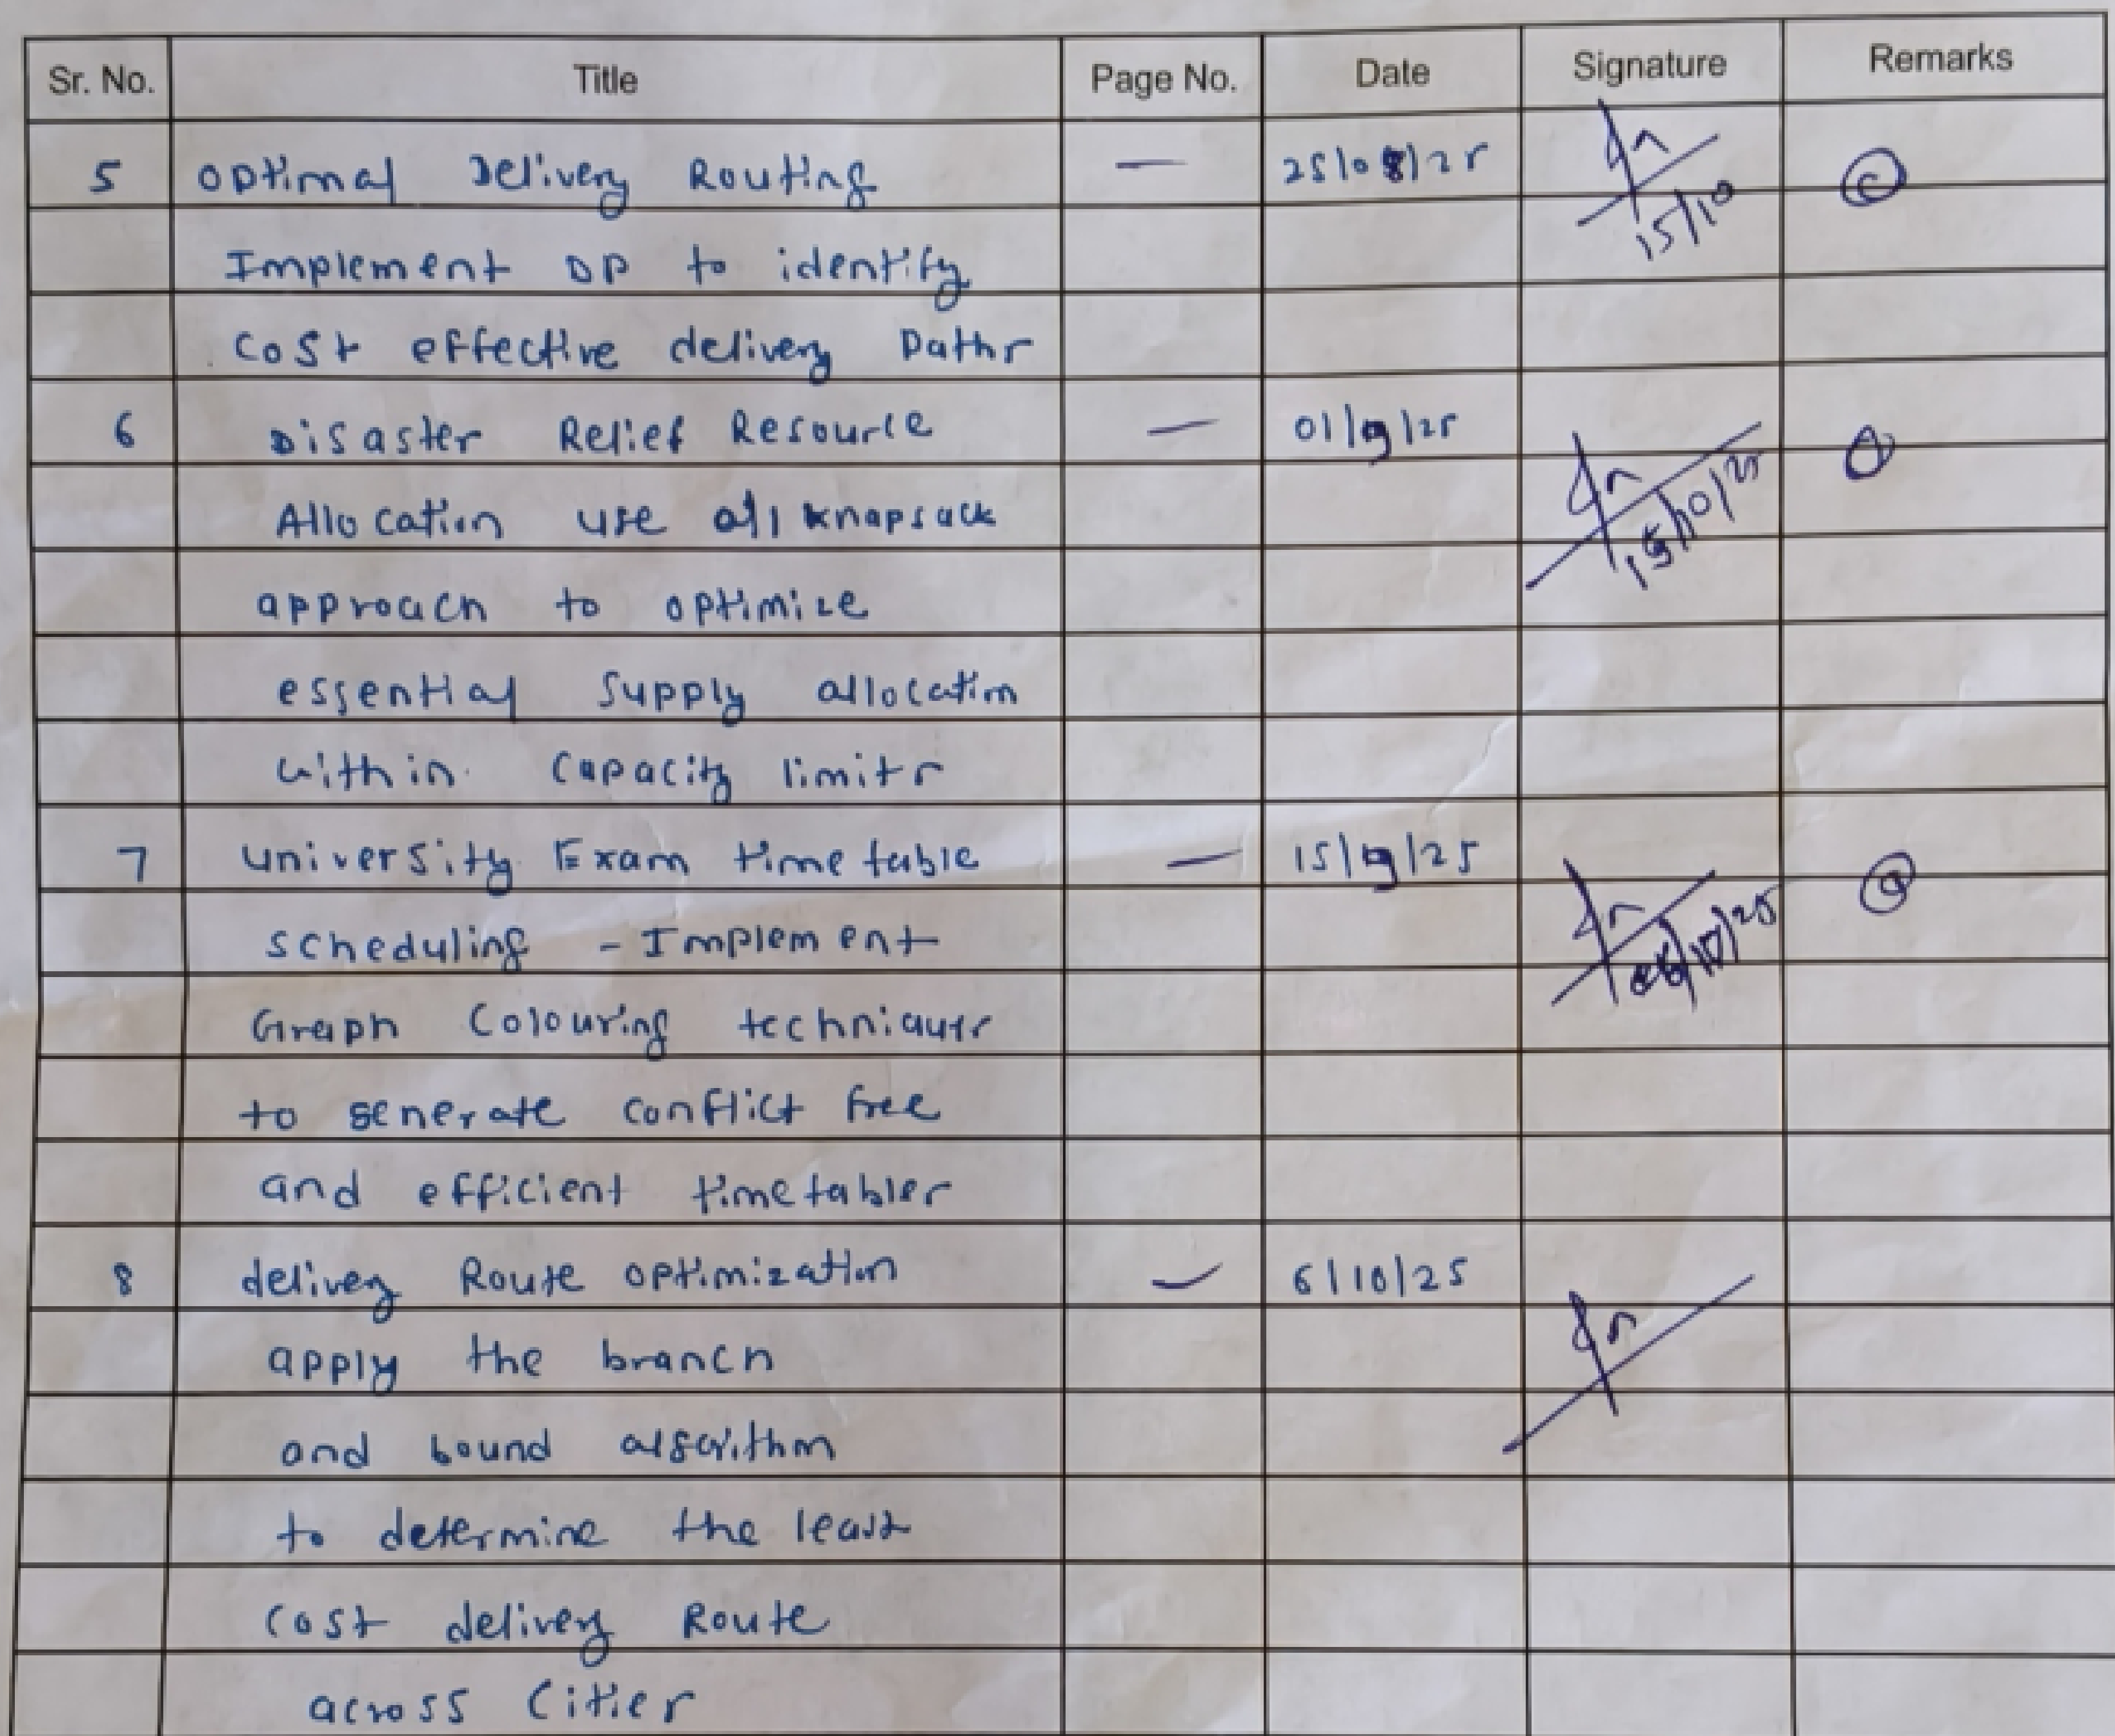 Sr. No. Title Page No. Date Signature Remarks
5 Optimal Delivery Routing — 25/08/25
15/10
Implement DP to identify
cost effective delivery Paths
6 Disaster Relief Resource — 01/9/25
15/10/25
Allocation use 0/1 knapsack
approach to optimize
essential supply allocation
within capacity limits
7 University Exam timetable — 15/9/25
scheduling - Implement
Graph Colouring techniques
to generate conflict free
and efficient timetables
8 delivery Route optimization — 6/10/25
apply the branch
and bound algorithm
to determine the least
cost delivery Route
across Cities